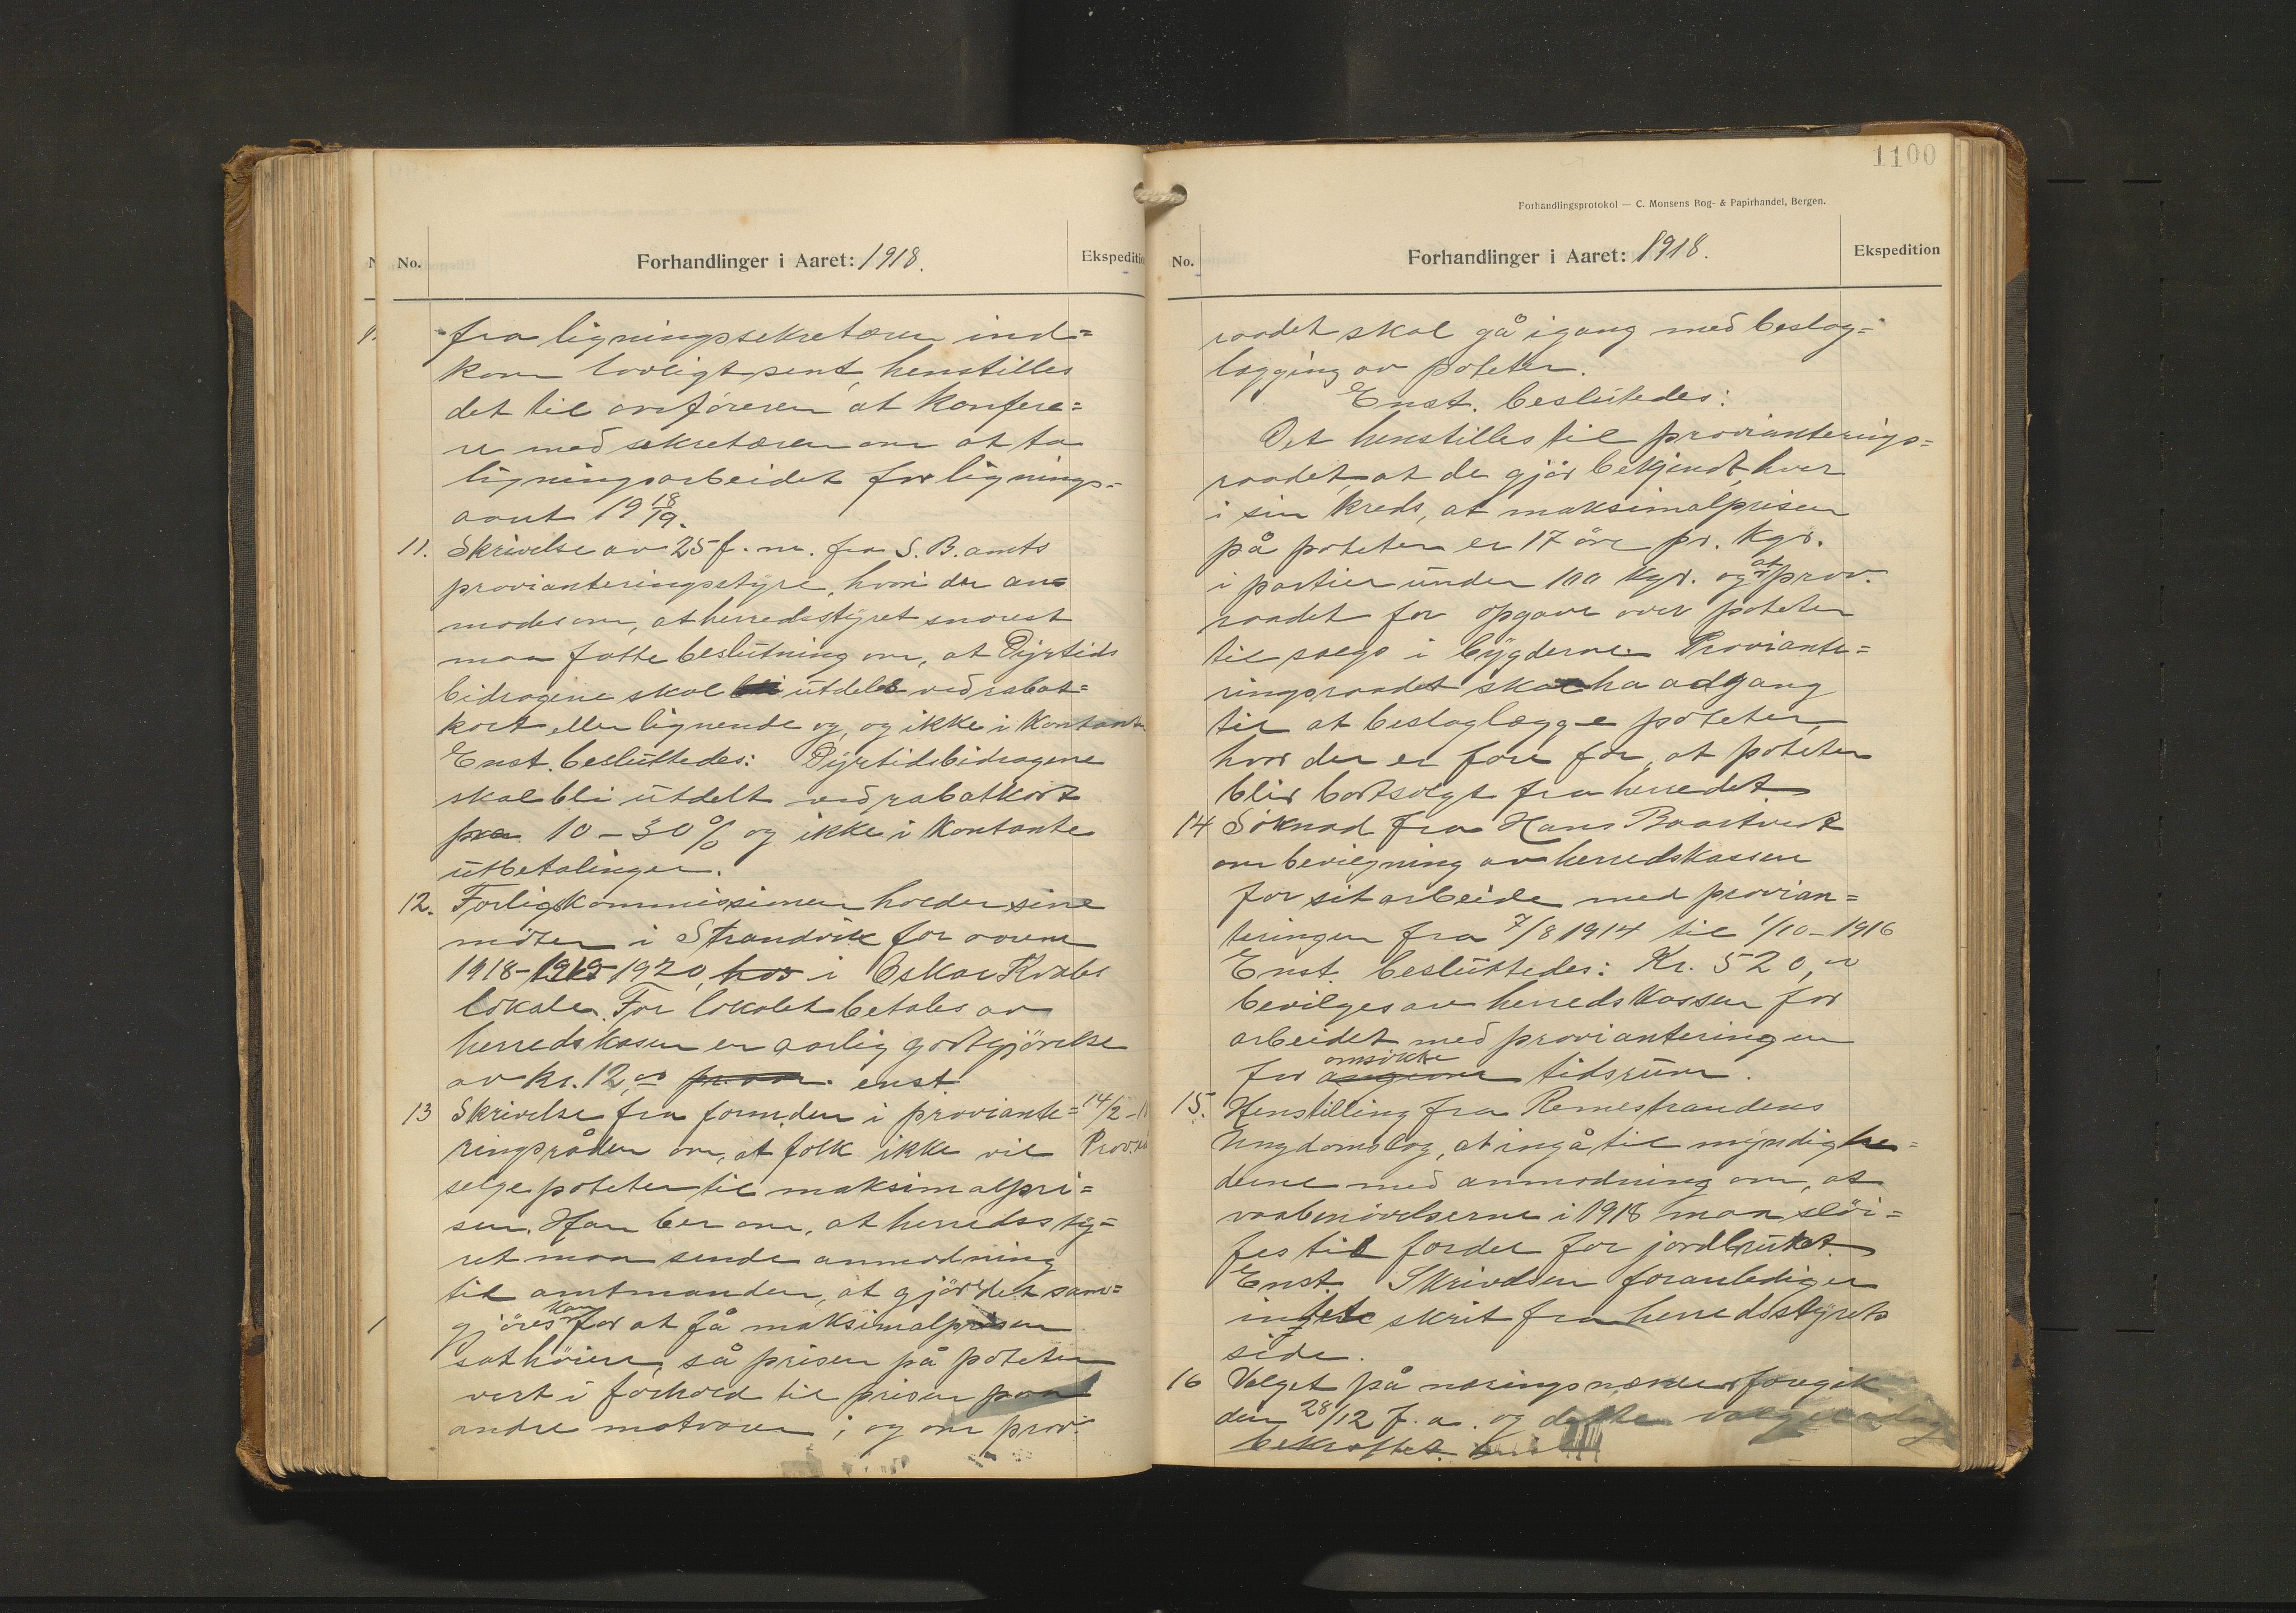 No.
Forhandlinger i Aaret: 1918.
Ekspeditio
fra ligningssekretæren ind=
kom lovligt sent, henstilles
det til ordføreren at konfere=
re med sekretæren om at ta
ligningsarbeidet for lignings=
aaret 19 18/19.
11. Skrivelse av 25 f. m. fra S. B. amts
provianteringsstyre, hvori der an=
modes om, at herredsstyret snarest
maa fatte beslutning om, at Dyrtids
bidragene skal bli utdelt ved rabat=
kort eller lignende og, og ikke i kontant
Enst. besluttedes: Dyrtidsbidragene
skal bli utdelt ved rabatkort
paa 10 - 30 % og ikke i kontante
utbetalinger.
12. Forligskommissionen holder sine
møter i Strandvik for aarene
1918-1919 1920, hos i Oskar Kvales
lokale. For lokalet betales av
herredskassen en aarlig godtgjörelse
av kr. 12,00 pr. aar. enst
13 Skrivelse fra formden i proviante=
14/2-1
ringsråden om, at folk ikke vil
Prov.
selge poteter til maksimalpri=
sen. Han ber om, at herredssty=
ret maa sende anmodning
til amtmanden, at gjør det som=
gjöres kan for at få maksimalprisen
sat höiere, så prisen på poteter
vert i forhold til prisen paa
andre matvarer; og om prov.
1100
Forhandlingsprotokol — C. Monsens Bog- & Papirhandel, Bergen.
No.
Forhandlinger i Aaret: 1918.
Ekspedition
raadet skal gå igang med beslag=
lægging av poteter.
Enst. beslutedes:
Det henstilles til provianterings=
raadet, at de gjør bekjendt, hver
i sin kreds, at maksimalprisen
på poteter er 17 öre pr. kgr.
i partier under 100 kgr. og at prov.
raadet for opgave over poteter
til salgs i bygderne. Proviante=
ringsraadet skal ha adgang
til at beslaglægge poteter,
hvor der er fare for, at poteter
blir bortsolgt fra herredet.
14 Söknad fra Hans Baartvedt
om bevilgning av herredskassen
for sit arbeide med provian=
teringen fra 7/8 1914 til 1/10 - 1916
Enst. besluttedes: Kr. 520,00
bevilges av herredskassen for
arbeidet med provianteringen
for omsökte angivne tidsrum.
15. Henstilling fra Remestrandens
Ungdomslag, at ingå til myndighe=
derne med anmodning om, at
vaabenövelserne i 1918 maa slöi=
fes til fordel for jordbruket.
Enst. Skrivelsen foranlediger
intet skrit fra herredsstyrets
side.
16 Valget på næringsnævnd foregik
den 28/12 f. a. og dette valg
bekræftet.